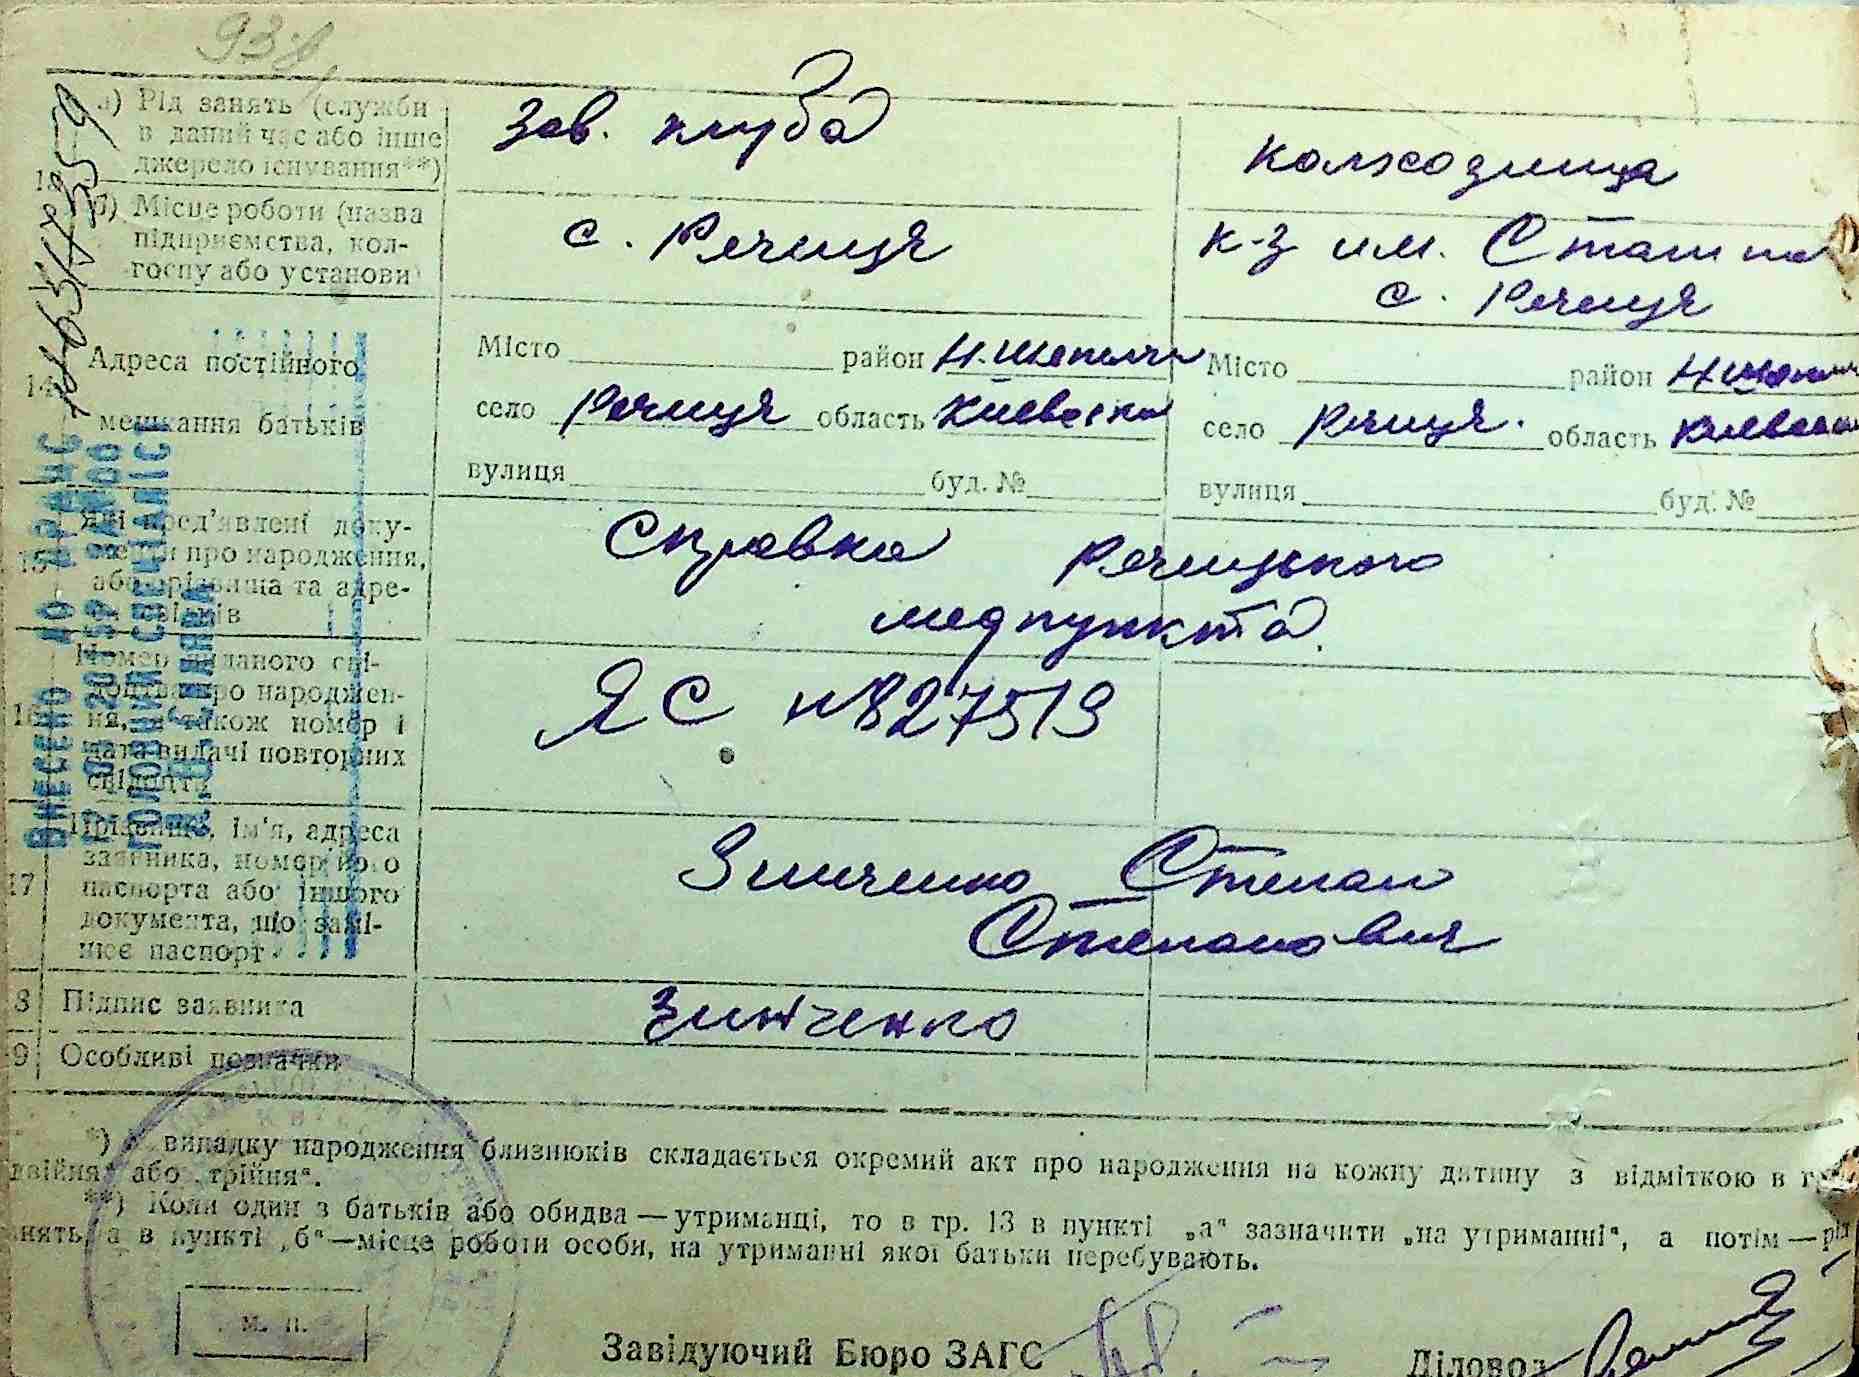 938
а) Рід занять (служби
в даний час або інше
джерело існування**)
Зав. клуба
колхозница
13
б) Місце роботи (назва
підприємства, кол-
госпу або установи)
с. Речиця
к-з им. Сталина
с. Речиця
14
Адреса постійного
мешкання батьків
Місто район Н.Шепелич
село Речиця область Киевская
вулиця буд. №
Місто район Н.Шепелич
село Речиця область Киевская
вулиця буд. №
15
Які пред'явлені доку-
менти про народження,
або прізвища та адре-
си свідків
Справка Речицького
медпункта.
16
Номер виданого сві-
доцтва про народжен-
ня, а також номер і
дата видачі повторних
свідоцтв
ЯС №827519
17
Прізвище, ім'я, адреса
заявника, номер його
паспорта або іншого
документа, що замі-
нює паспорт
Зинченко Степан
Степанович
8 Підпис заявника
Зинченко
9 Особливі позначки
ВНЕСЕНО ДО ДРАЦС
ГОЛОВНИЙ СПЕЦІАЛІСТ
*) У випадку народження близнюків складається окремий акт про народження на кожну дитину з відміткою в гр.
„двійня“ або „трійня“.
**) Коли один з батьків або обидва—утриманці, то в гр. 13 в пункті „а“ зазначити „на утриманні“, а потім—рід
занять, а в пункті „б“—місце роботи особи, на утриманні якої батьки перебувають.
м. п.
Завідуючий Бюро ЗАГС
Діловод